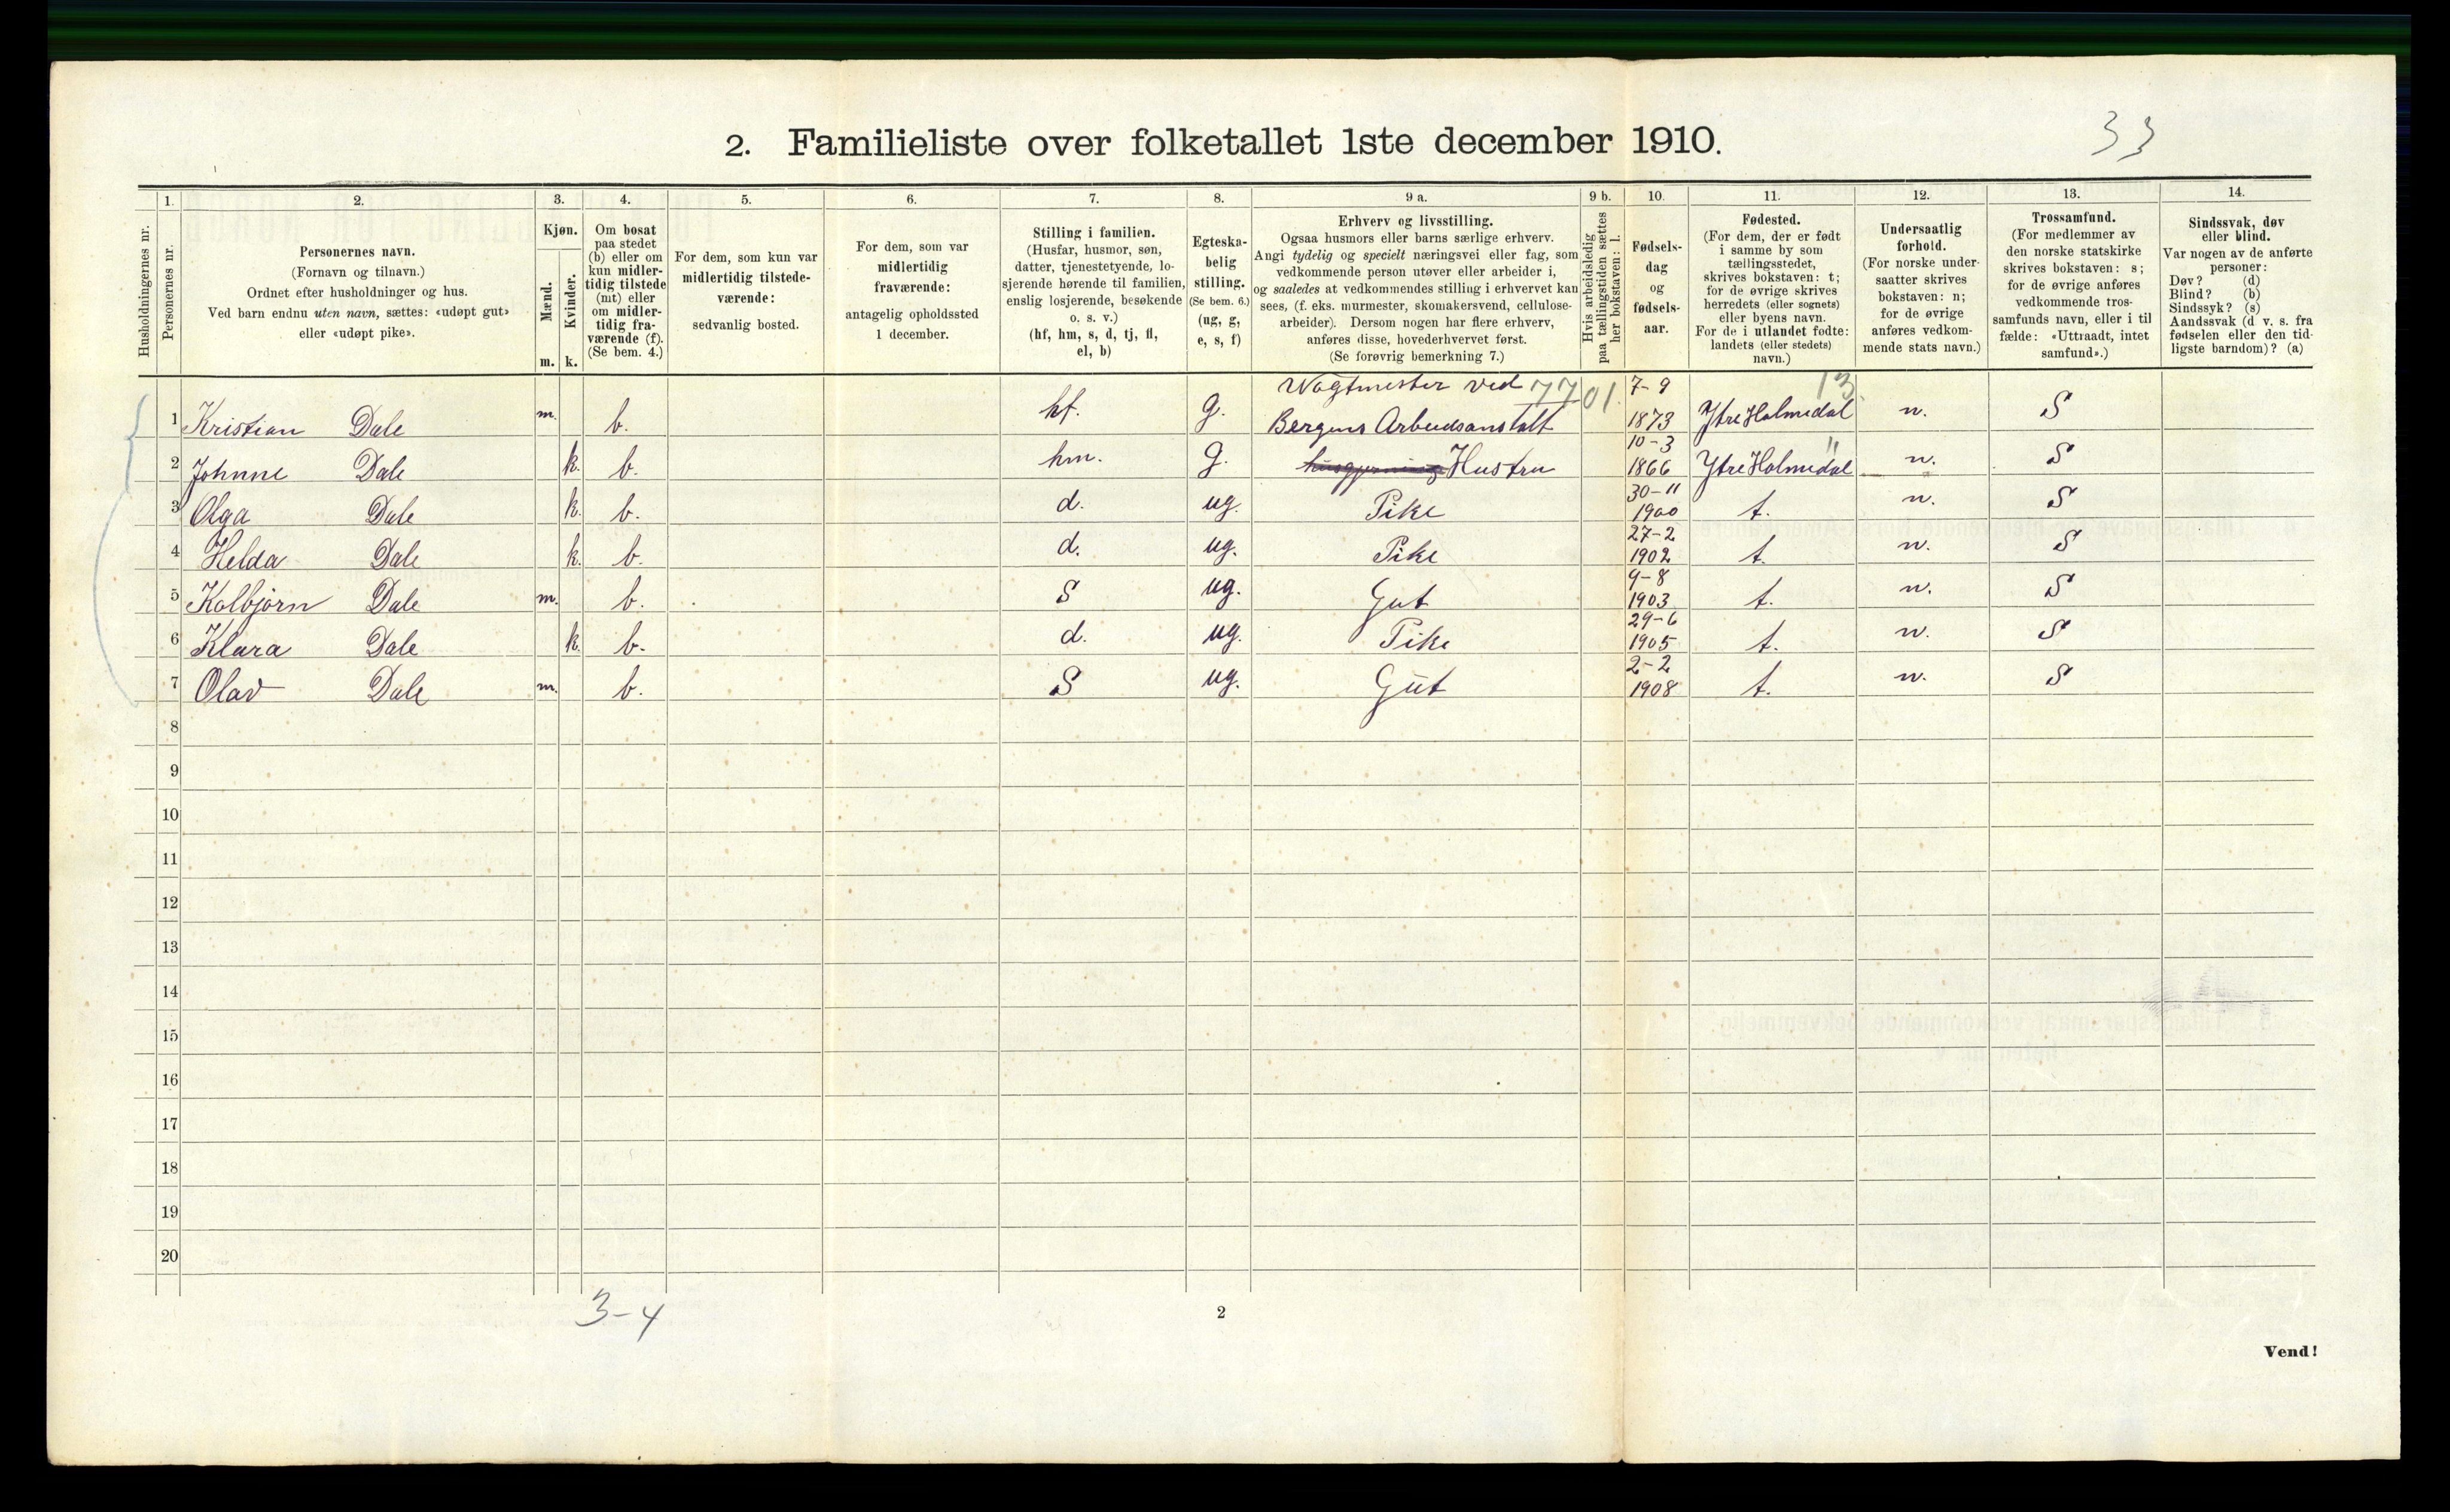 33
2. Familieliste over folketallet 1ste december 1910.
Husholdningernes nr.
1. Personernes nr.
2. Personernes navn. (Fornavn og tilnavn.) Ordnet efter husholdninger og hus. Ved barn endnu uten navn, sættes: «udøpt gut» eller «udøpt pike».
3. Kjøn. Mænd. m. Kvinder. k.
4. Om bosat paa stedet (b) eller om kun midlertidig tilstede (mt) eller om midlertidig fraværende (f). (Se bem. 4.)
5. For dem, som kun var midlertidig tilstedeværende: sedvanlig bosted.
6. For dem, som var midlertidig fraværende: antagelig opholdssted 1 december.
7. Stilling i familien. (Husfar, husmor, søn, datter, tjenestetyende, losjerende hørende til familien, enslig losjerende, besøkende o. s. v.) (hf, hm, s, d, tj, fl, el, b)
8. Egteskabelig stilling. (Se bem. 6.) (ug, g, e, s, f)
9 a. Erhverv og livsstilling. Ogsaa husmors eller barns særlige erhverv. Angi tydelig og specielt næringsvei eller fag, som vedkommende person utøver eller arbeider i, og saaledes at vedkommendes stilling i erhvervet kan sees, (f. eks. murmester, skomakersvend, cellulosearbeider). Dersom nogen har flere erhverv, anføres disse, hovederhvervet først. (Se forøvrig bemerkning 7.)
9 b. Hvis arbeidsledig paa tællingstiden sættes her bokstaven: l.
10. Fødselsdag og fødselsaar.
11. Fødested. (For dem, der er født i samme by som tællingsstedet, skrives bokstaven: t; for de øvrige skrives herredets (eller sognets) eller byens navn. For de i utlandet fødte: landets (eller stedets) navn.)
12. Undersaatlig forhold. (For norske undersaatter skrives bokstaven: n; for de øvrige anføres vedkommende stats navn.)
13. Trossamfund. (For medlemmer av den norske statskirke skrives bokstaven: s; for de øvrige anføres vedkommende trossamfunds navn, eller i tilfælde: «Uttraadt, intet samfund».)
14. Sindssvak, døv eller blind. Var nogen av de anførte personer: Døv? (d) Blind? (b) Sindssyk? (s) Aandssvak (d v. s. fra fødselen eller den tidligste barndom)? (a)
1 Kristian Dale m. b. hf. g. Vagtmester ved Bergens Arbeidsanstalt 7701 7-9 1873 Ytre Holmedal 13 n. S
2 Johnne Dale k. b. hm. g. Hustru 10-3 1866 Ytre Holmedal " n. S
3 Olga Dale k. b. d. ug. Pike 30-11 1900 t. n. S
4 Helda Dale k. b. d. ug. Pike 27-2 1902 t. n. S
5 Kolbjørn Dale m. b. S ug. Gut 9-8 1903 t. n. S
6 Klara Dale k. b. d. ug. Pike 29-6 1905 t. n. S
7 Olav Dale m. b. S ug. Gut 2-2 1908 t. n. S
8
9
10
11
12
13
14
15
16
17
18
19
20
3-4
2
Vend!